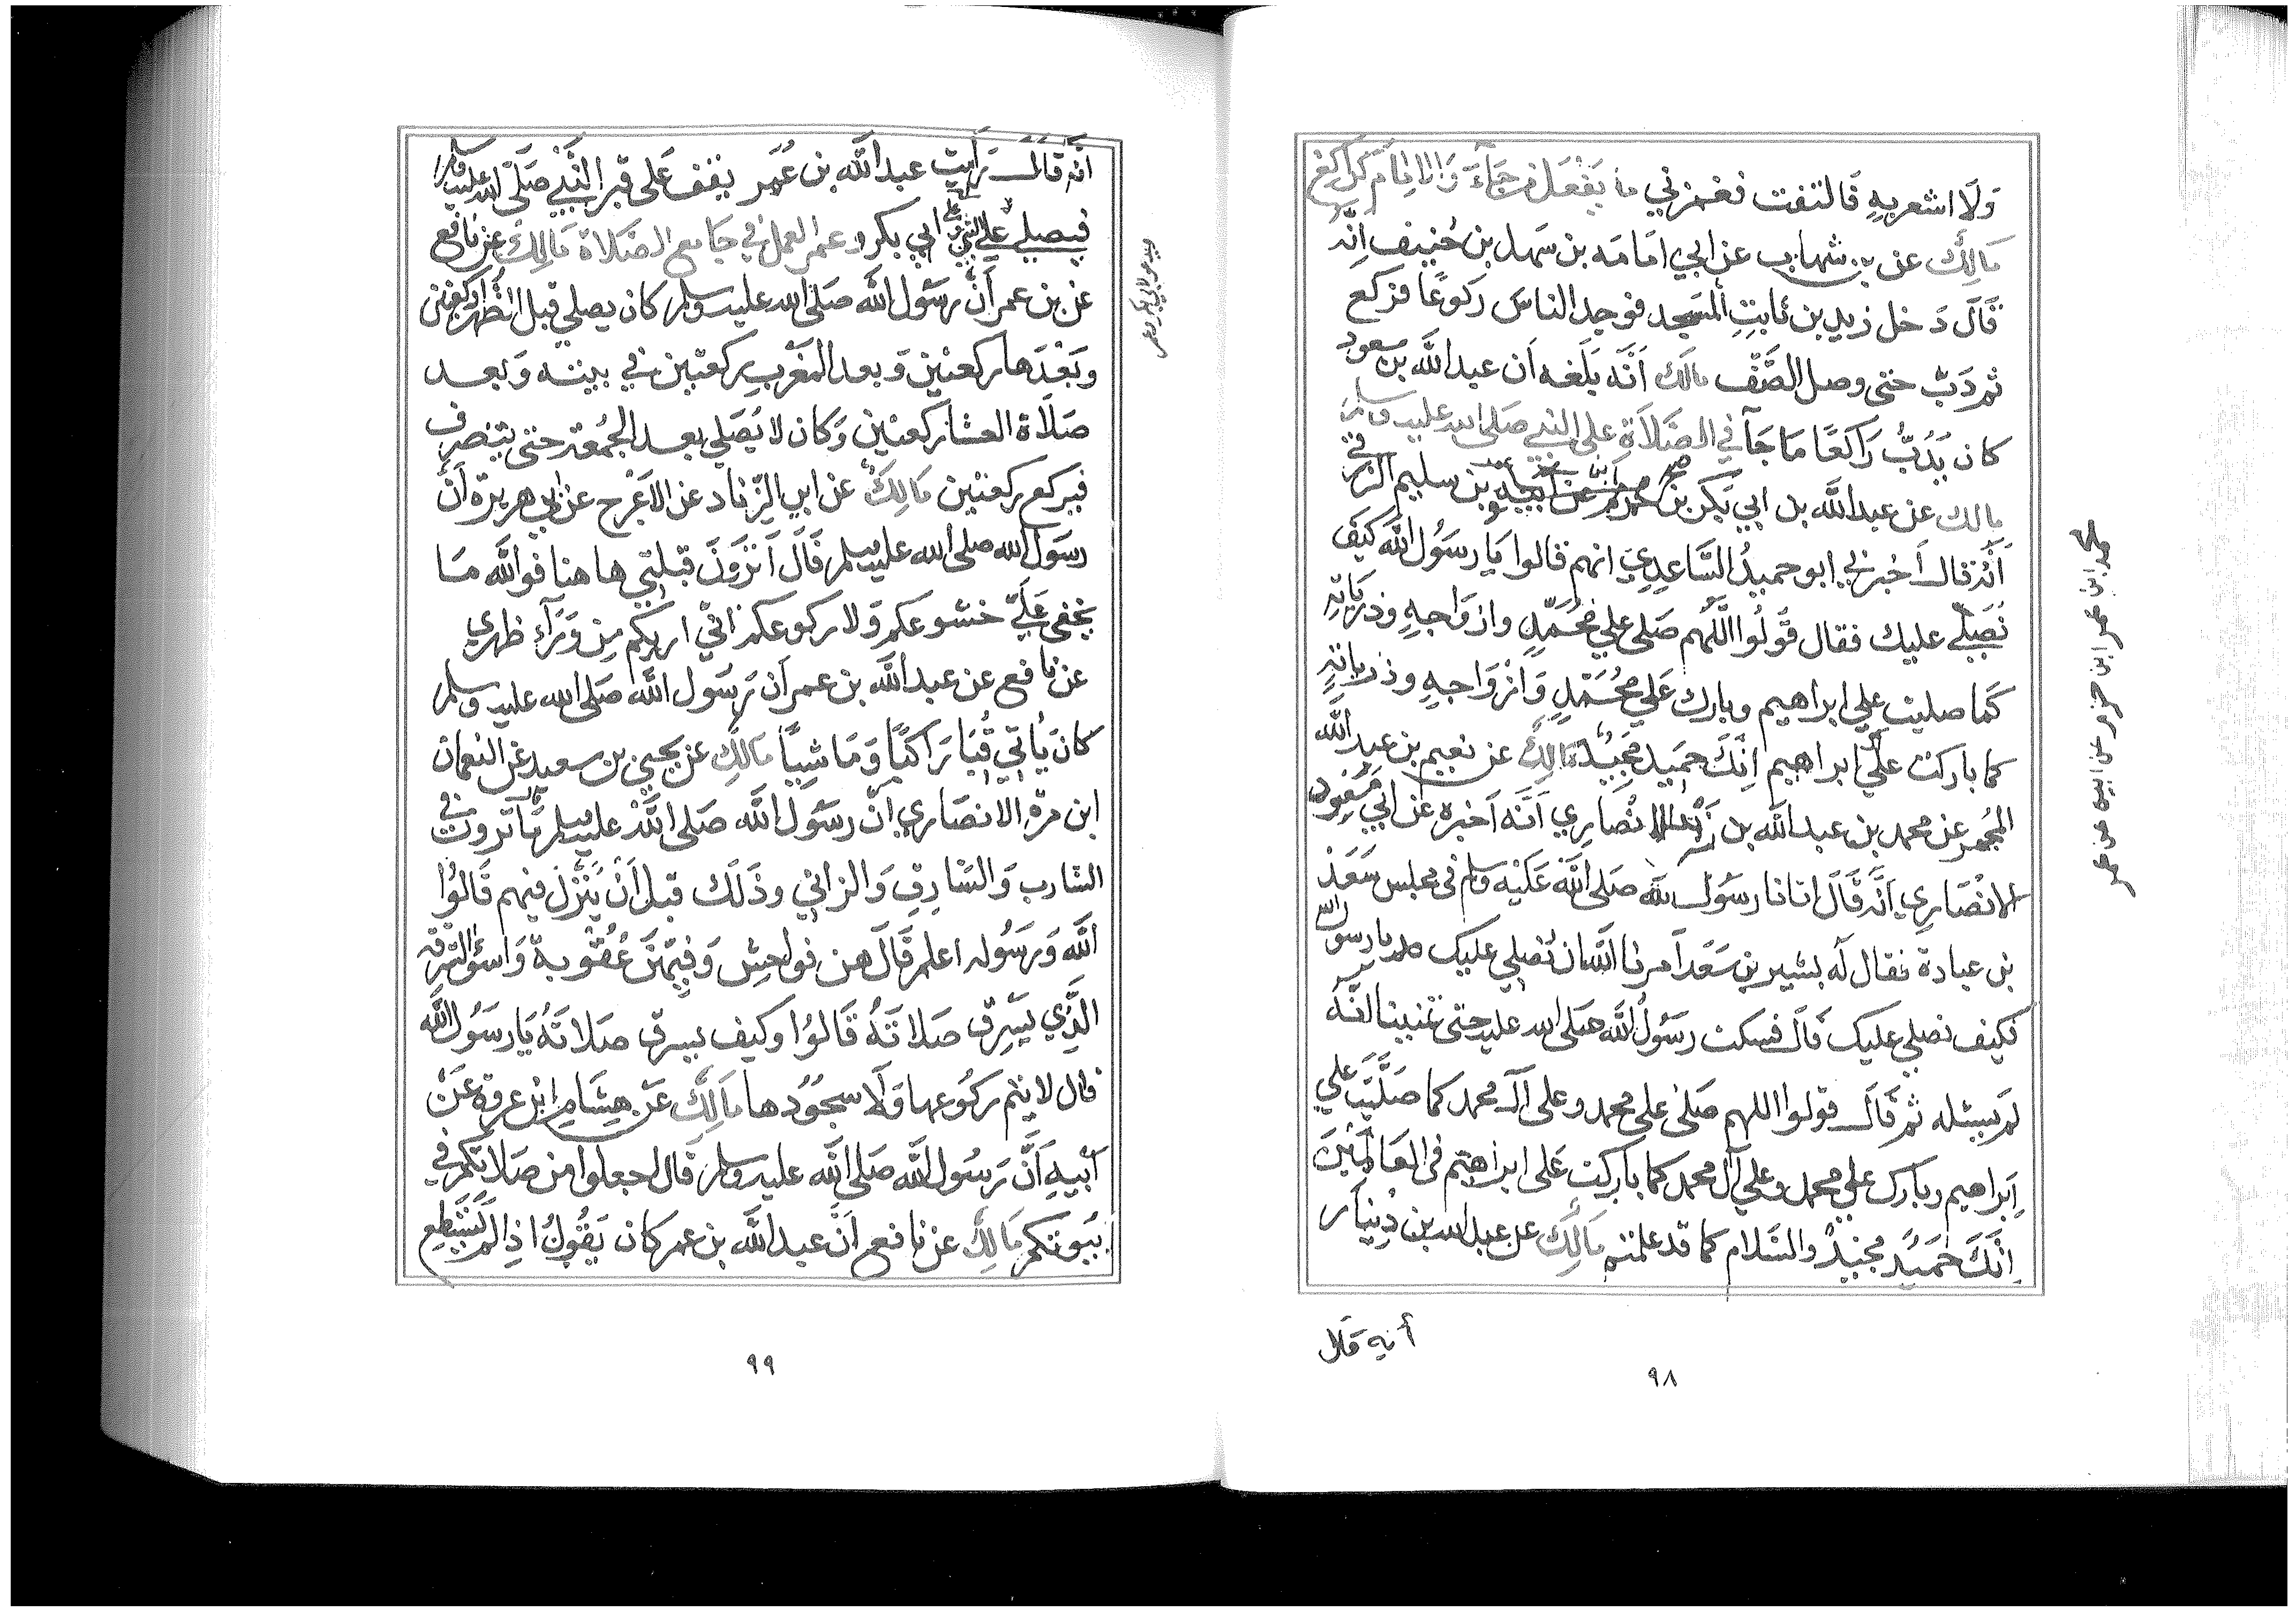 وَلَا اشعر بهِ فَالتفت فغمزني ما يَفْعَل من جَاءَ وَالاِمَام رَاكع
مَالِك عن بن شهاب عن ابي امَامَه بن سَهل بن حُنيف انه
قَالَ دَخل زيد بن ثابتِ المَسجد فوجد الناسَ ركوعًا فركع
ثم دَبّ حتى وصل الصَّف مالك اَنَّه بَلَغه اَن عبد اللَّه بن مسعود
كان يَدُبُّ رَاكعًا مَا جَآ في الصَّلَاة على النبي صَلى الله عليه وسلم
مالك عن عبد اللَّه بن ابي بَكر بن محمد عن ابيه بن سليم الزرقي
اَنه قال اَخبرني ابو حميد السَّاعدِي انهم قالوا يَا رسُول اللَّه كيَف
نُصَلي عليك فقال قُولُوا اللَّهم صَلى علي محُمَّدٍ وازوَاجهِ وذرياتهِ
كَما صليت علي ابراهيم وبارك عَلي محُمَّدٍ وَازْوَاجهِ وذرياتهِ
كما باركت علي ابراهيم اِنَّكَ حَميد مَجيد مَالِك عن نعيم بن عبد اللَّه
المُجمر عن محمد بن عبد اللَّه بن زيد الانْصَارِي اَنَّه اَخبره عن ابي مَسْعود
الانْصَارِي اَنَّه قَالَ اتانا رسُول الله صَلى اللَّه عَلَيْه وسلم في مجلس سَعَدْ
بن عبادة فقال لَه بشير بن سَعَد اَمرنا اللَّه ان نُصَلي عليك يا رسول الله
فكيف نصلي عليك قَال فسكت رسُول اللَّه صَلى الله عليه حتى تمنينا انَّه
لم يسئله ثم قَال قولوا اللهم صَلى على محمد وعلى آل محمد كما صَلَّيت علي
اِبراهيم وبارك علي محمد وعلي آل محمد كما باركت عَلى ابراهيم في العَالمين
اِنَّكَ حَمَيدٌ مجيدٌ والسَّلام كما قد علمتم مَالِك عن عبد الله بن دِينار
أنه قال
٩٨
محمد ابن عمر ابن حزم عن ابيه عن عمر
انّه قالَ رَاَيت عبد اللَّه بن عُمَر يقف عَلى قبر النَّبي صَلى الله عليه وسلم
فيصلي علي النبي وعلى ابي بكر وعمر العمل في جَامع الصَّلَاة مَالِك عن نافع
عن بن عمر اَنَّ رَسُول اللَّه صَلى الله عليه وسلم كان يصلي قبل الظُهر ركعتين
وبَعْدَها ركعتين وَبعد المَغْرب ركعَتين في بيته وَبعد
صَلَاة العشا ركعتين وَكان لا يُصَلي بعد الجمُعة حتى ينصرف
فيركع ركعتين مَالِك عن ابي الزِّناد عن الاَعْرج عن ابي هريرَة اَنَّ
رسَول الله صلى الله عليه وسلم قَالَ اَتَرَوْنَ قبلتي ها هنا فو اللَّه مَا
يخفى عَلَيّ خشوعكم وَلا ركوعكم انّي اريكم مِن وَرَآءِ ظهري
عن نافع عن عبد اللَّه بن عمر اَن رَسُول اللَّه صَلى الله عليه وسلم
كانَ يَاتي قُبَا رَاكبًا وَمَاشيًا مَالِك عن يحيى بن سعيد عن النعمان
ابن مرة الانصَاري انّ رسَول اللَّه صَلى اللَّه عليه وسلم قال مَا ترون في
الشارب وَالسّارِق وَالزاني وذَلكَ قبل اَنْ يُنْزل فيهم قَالوُا
اللَّه وَرسَوُله اعلم قَالَ هن فواحش وَفيهن عُقُوبة وَاسؤ السّرقه
الَّذِي يسَرِق صَلاتَهُ قَالوُا وكيف يسرق صَلاتَهُ يَا رسُول اللَّه
قال لا يتم ركوعها وَلَا سجُودها مَالِك عَن هِشَام ابن عروة عَنْ
اَبيهِ اَنَّ رَسُول اللَّه صَلى اللَّه عليه وسلم قَال اجعلوا من صَلاتكم في
بيُوتكم مَالِك عن نافع اَنَّ عبد اللَّه بن عمر كان يَقُولُ اذِا لم يَسْتَطِعِ
٩٩